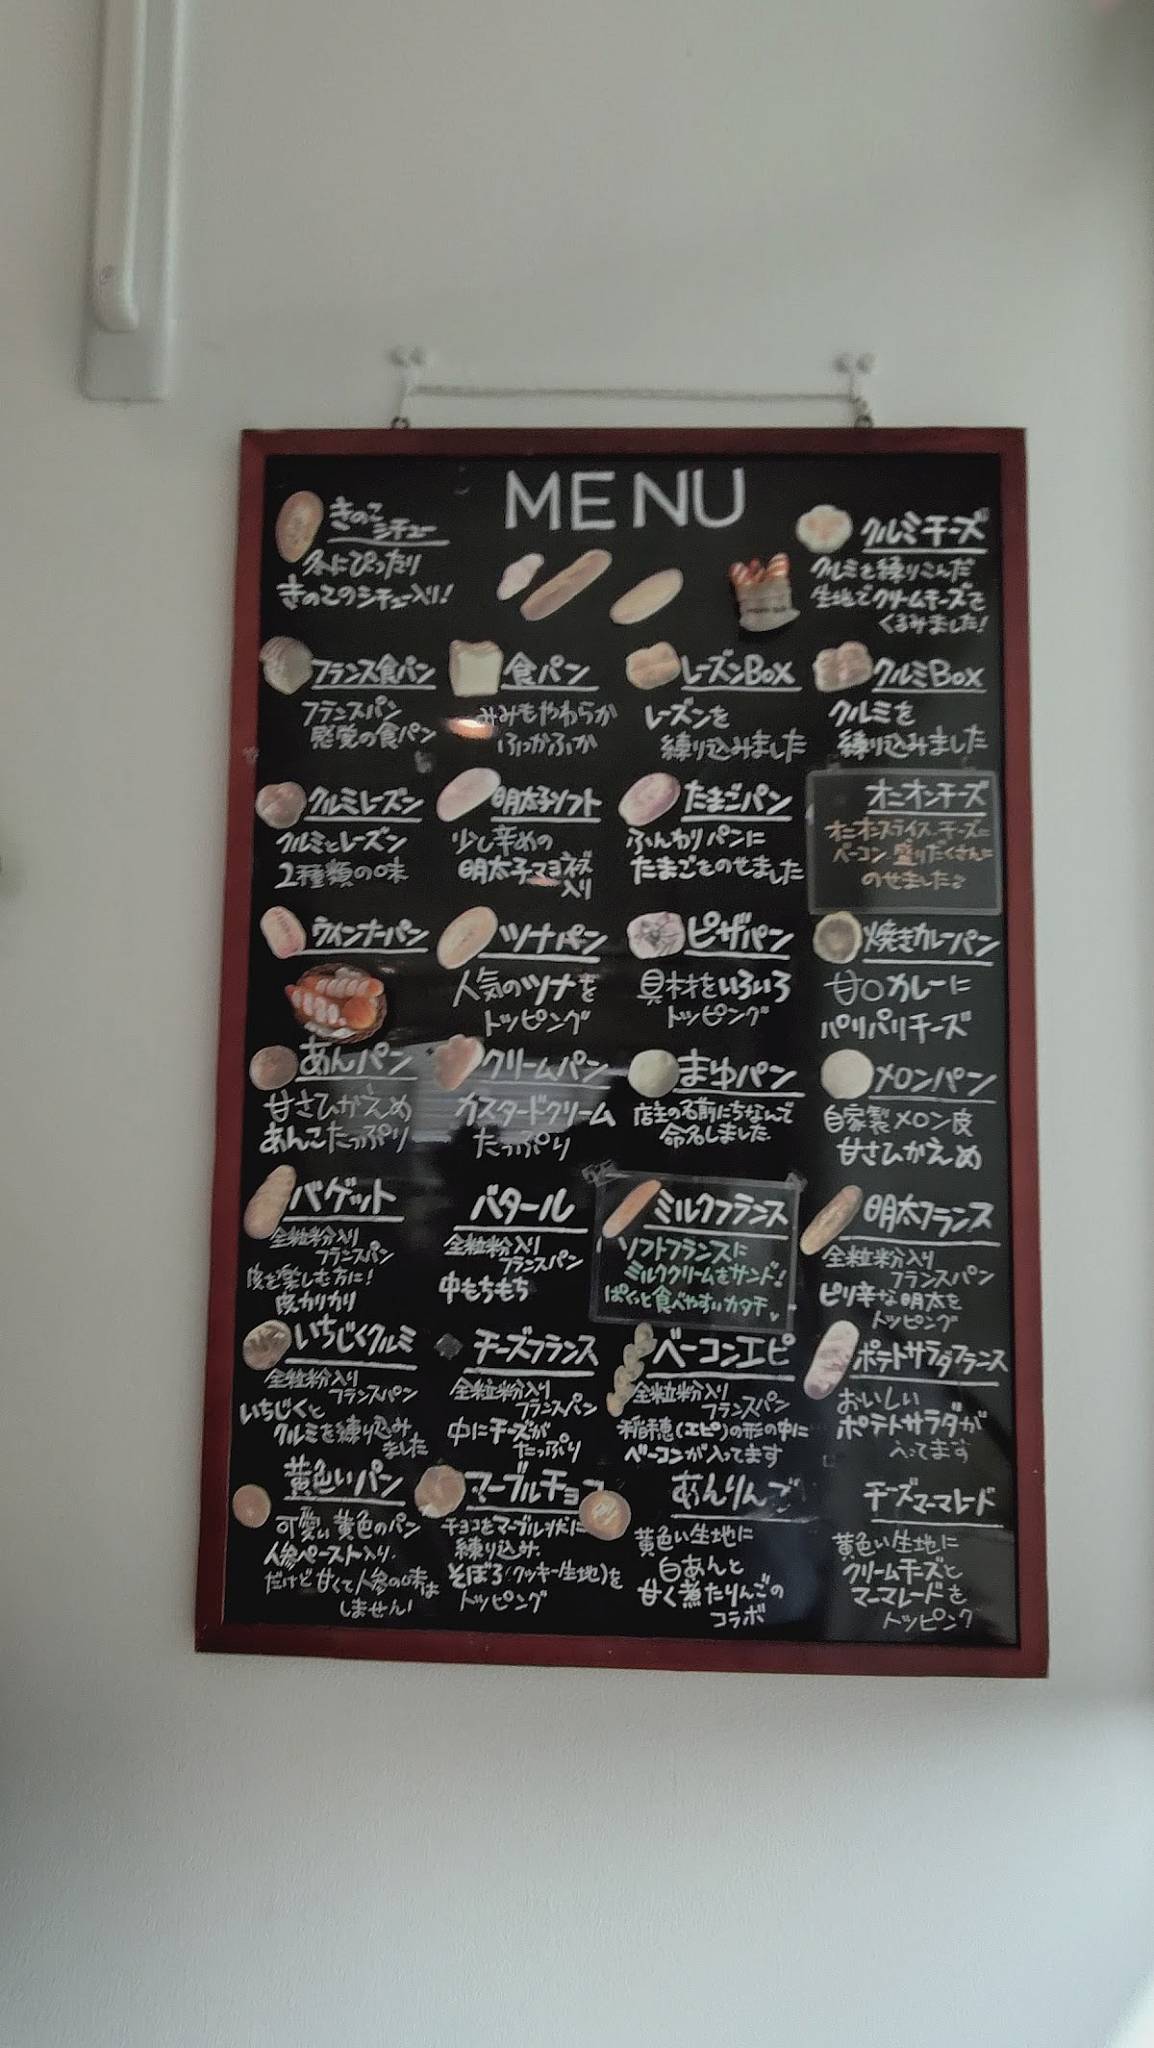 MENU
きのこ
シチュー
冬にぴったり
きのこのシチュー入り!
クルミチーズ
クルミを練りこんだ
生地でクリームチーズを
くるみました!
フランス食パン
フランスパン
感覚の食パン
食パン
みみもやわらか
ふっかふか
レーズンBOX
レーズンを
練り込みました
クルミBOX
クルミを
練り込みました
クルミレーズン
クルミとレーズン
2種類の味
明太子ソフト
少し辛めの
明太子マヨネーズ
入り
たまごパン
ふんわりパンに
たまごをのせました
オニオンチーズ
オニオンスライス、チーズに
ベーコン、盛りだくさんに
のせました♪
ウインナーパン
ツナパン
人気のツナを
トッピング
ピザパン
具材をいろいろ
トッピング
焼きカレーパン
甘口カレーに
パリパリチーズ
あんパン
甘さひかえめ
あんこたっぷり
クリームパン
カスタードクリーム
たっぷり
まゆパン
店主の名前にちなんで
命名しました
メロンパン
自家製メロン皮
甘さひかえめ
バゲット
全粒粉入り
フランスパン
皮を楽しむ方に!
皮カリカリ
バタール
全粒粉入り
フランスパン
中もちもち
ミルクフランス
ソフトフランスに
ミルククリームをサンド!
ぱくっと食べやすいカタチ
明太フランス
全粒粉入り
フランスパン
ピリ辛な明太を
トッピング
いちじくクルミ
全粒粉入り
フランスパン
いちじくと
クルミを練り込み
ました
チーズフランス
全粒粉入り
フランスパン
中にチーズが
たっぷり
ベーコンエピ
全粒粉入り
フランスパン
稲穂(エピ)の形の中に
ベーコンが入ってます
ポテトサラダフランス
おいしい
ポテトサラダが
入ってます
黄色いパン
可愛い黄色のパン
人参ペースト入り.
だけど甘くて人参の味は
しません!
マーブルチョコ
チョコをマーブル状に
練り込み.
そぼろ(クッキー生地)を
トッピング
あんりんご
黄色い生地に
白あんと
甘く煮たりんごの
コラボ
チーズマーマレード
黄色い生地に
クリームチーズと
マーマレードを
トッピング